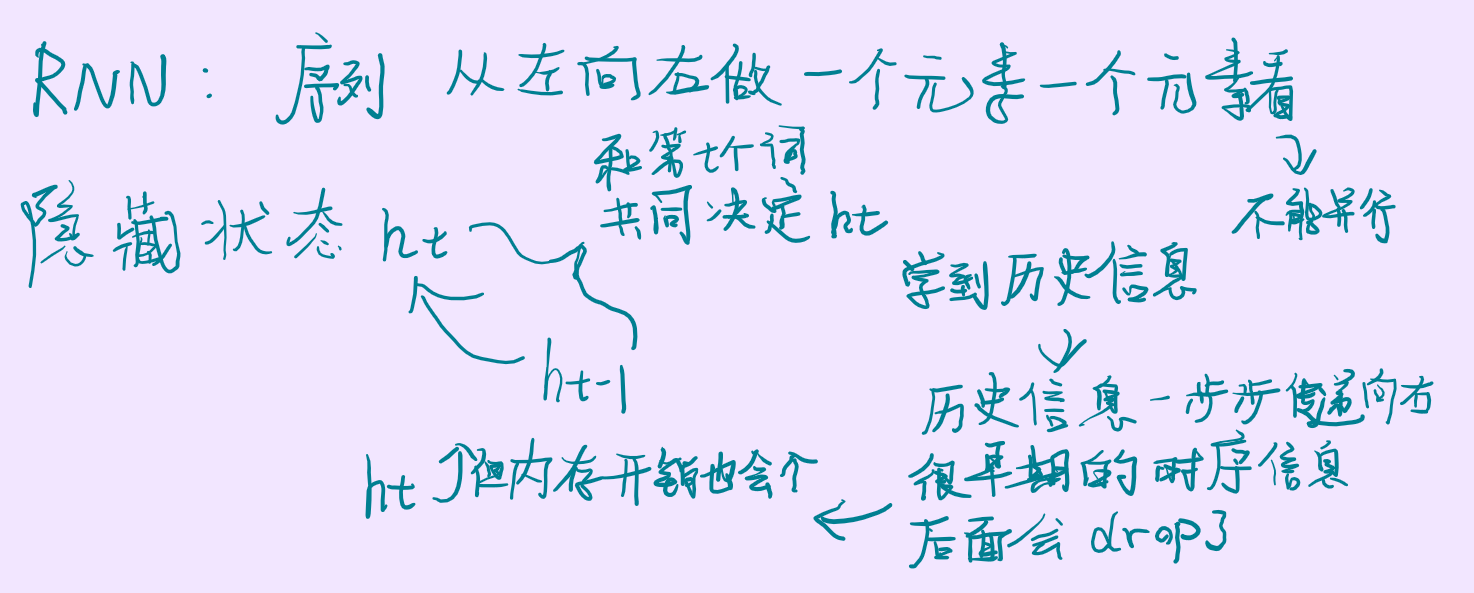 RNN： 序列 从左向右做 一个元素一个元素看
不能并行
和第t个词
共同决定 ht
隐藏状态 ht
ht-1
学到历史信息
历史信息一步步传递向右
很早期的时序信息
后面会drop了
ht ↑但内存开销也会↑